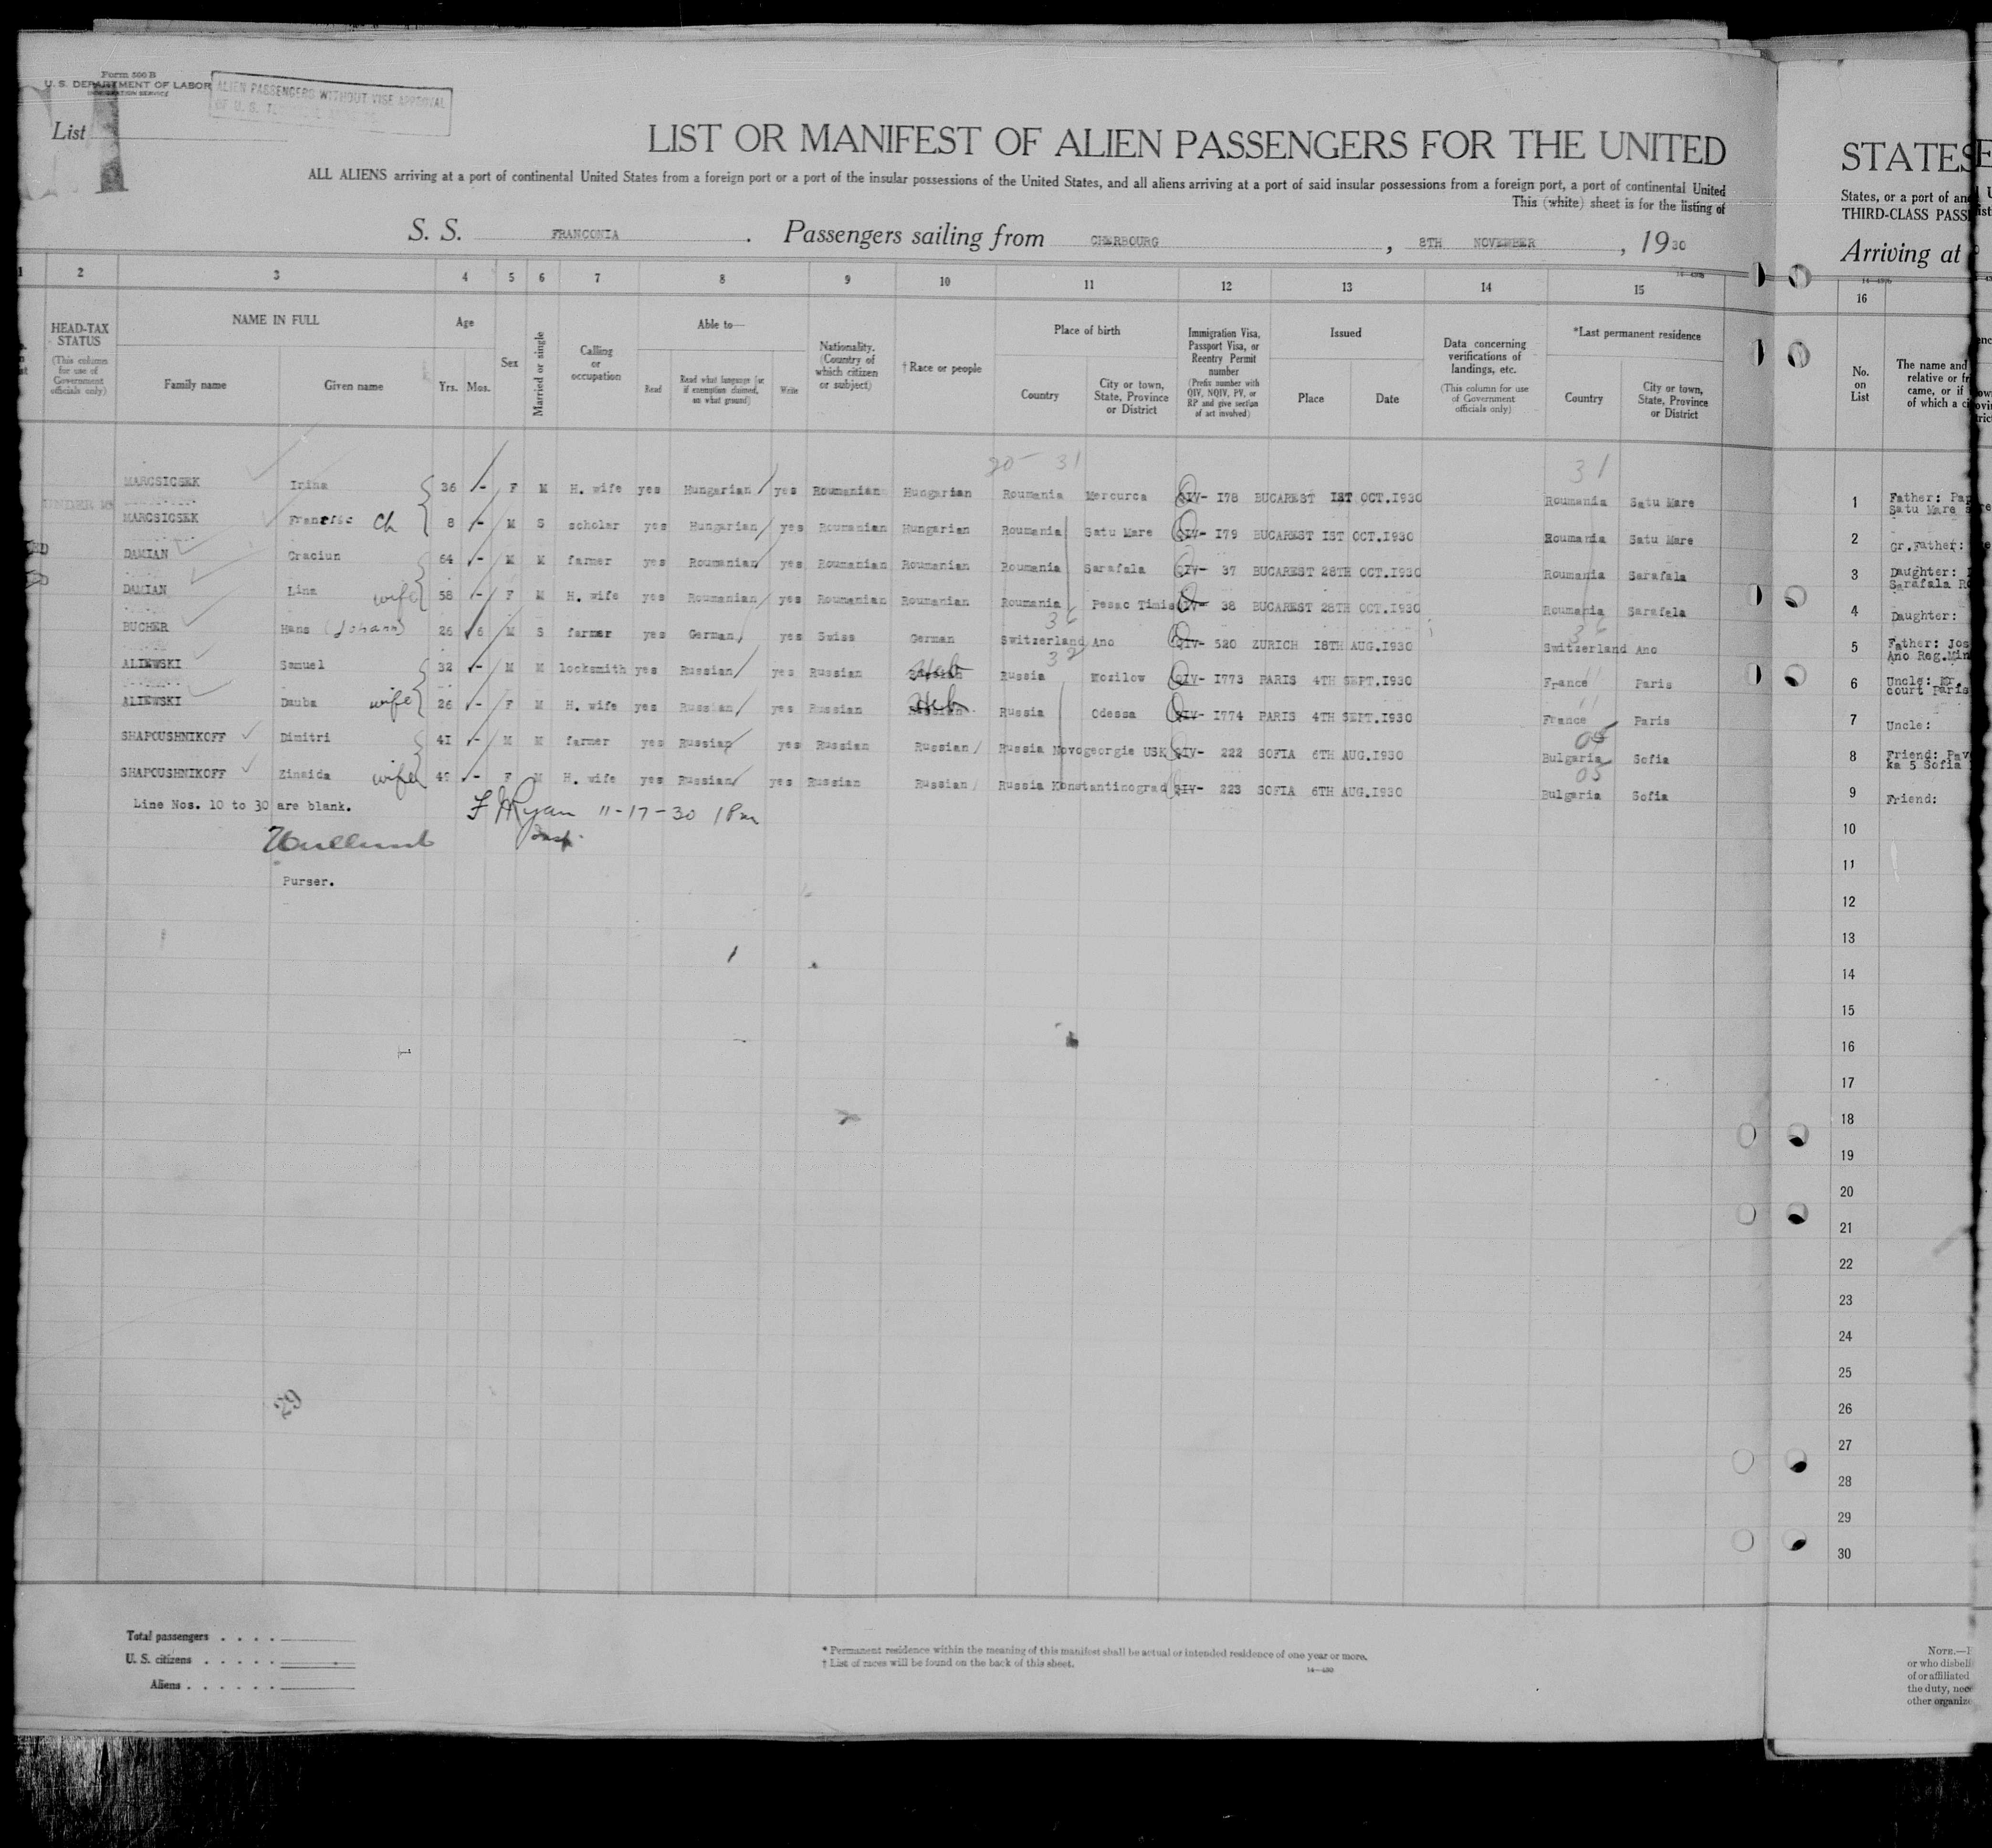 Form 500 B
U. S. DEPARTMENT OF LABOR
IMMIGRATION SERVICE
ALIEN PASSENGERS WITHOUT VISE APPROVAL
List
LIST OR MANIFEST OF ALIEN PASSENGERS FOR THE UNITED
ALL ALIENS arriving at a port of continental United States from a foreign port or a port of the insular possessions of the United States, and all aliens arriving at a port of said insular possessions from a foreign port, a port of continental United
This (white) sheet is for the listing of
S. S. FRANCONIA. Passengers sailing from CHERBOURG, 8TH NOVEMBER, 1930
1 2 3 4 5 6 7 8 9 10 11 12 13 14 15
HEAD-TAX STATUS (This column for use of Government officials only)
NAME IN FULL
Family name Given name
Age
Yrs. Mos.
Sex
Married or single
Calling or occupation
Able to—
Read Read what language (or if exemption claimed, on what ground) Write
Nationality. (Country of which citizen or subject)
†Race or people
Place of birth
Country City or town, State, Province or District
Immigration Visa, Passport Visa, or Reentry Permit number (Prefix number with QIV, NQIV, PV, or RP and give section of act involved)
Issued
Place Date
Data concerning verifications of landings, etc. (This column for use of Government officials only)
*Last permanent residence
Country City or town, State, Province or District
20- 31 31
MARCSICSEK Irina 36 - F M H. wife yes Hungarian yes Roumanian Hungarian Roumania Mercurea QIV- 178 BUCAREST 1ST OCT.1930 Roumania Satu Mare
UNDER 16
MARCSICSEK Ch 8 - M S scholar yes Hungarian yes Roumanian Hungarian Roumania Satu Mare QIV- 179 BUCAREST 1ST OCT.1930 Roumania Satu Mare
DAMIAN Craciun 64 - M M farmer yes Roumanian yes Roumanian Roumanian Roumania Sarafala QIV- 37 BUCAREST 28TH OCT.1930 Roumania Sarafala
DAMIAN Lina wife 58 - F M H. wife yes Roumanian yes Roumanian Roumanian Roumania Pesac Timis QIV- 38 BUCAREST 28TH OCT.1930 Roumania Sarafala
36 36
BUCHER Hans (Johann) 26 6 M S farmer yes German yes Swiss German Switzerland Ano QIV- 520 ZURICH 18TH AUG.1930 Switzerland Ano
32
ALIEWSKI Samuel 32 - M M locksmith yes Russian yes Russian Heb Russia Mozilow QIV- 1773 PARIS 4TH SEPT.1930 France Paris
11
ALIEWSKI Dauba wife 26 - F M H. wife yes Russian yes Russian Heb Russia Odessa QIV- 1774 PARIS 4TH SEPT.1930 France Paris
11
SHAPOUSHNIKOFF Dimitri 41 - M M farmer yes Russian yes Russian Russian Russia Novogeorgie USK QIV- 222 SOFIA 6TH AUG.1930 Bulgaria Sofia
05
SHAPOUSHNIKOFF Zinaida wife 49 - F M H. wife yes Russian yes Russian Russian Russia Konstantinograd QIV- 223 SOFIA 6TH AUG.1930 Bulgaria Sofia
Line Nos. 10 to 30 are blank.
F Ryan 11-17-30 1 Pm
Insp.
Purser.
29
Total passengers
U. S. citizens
Aliens
* Permanent residence within the meaning of this manifest shall be actual or intended residence of one year or more.
† List of races will be found on the back of this sheet.
14—430
STATES
States, or a port of
THIRD-CLASS
Arriving at
16
No. on List
The name and
relative or
came, or if
of which a
1 Father:
Satu Mare
2 Gr.Father:
3 Daughter:
Sarafala
4 Daughter:
5 Father: Jos
Ano Reg.
6 Uncle:
court Paris
7 Uncle:
8 Friend:
ka 5 Sofia
9 Friend:
10
11
12
13
14
15
16
17
18
19
20
21
22
23
24
25
26
27
28
29
30
NOTE.—
or who
of or affiliated
the duty,
other